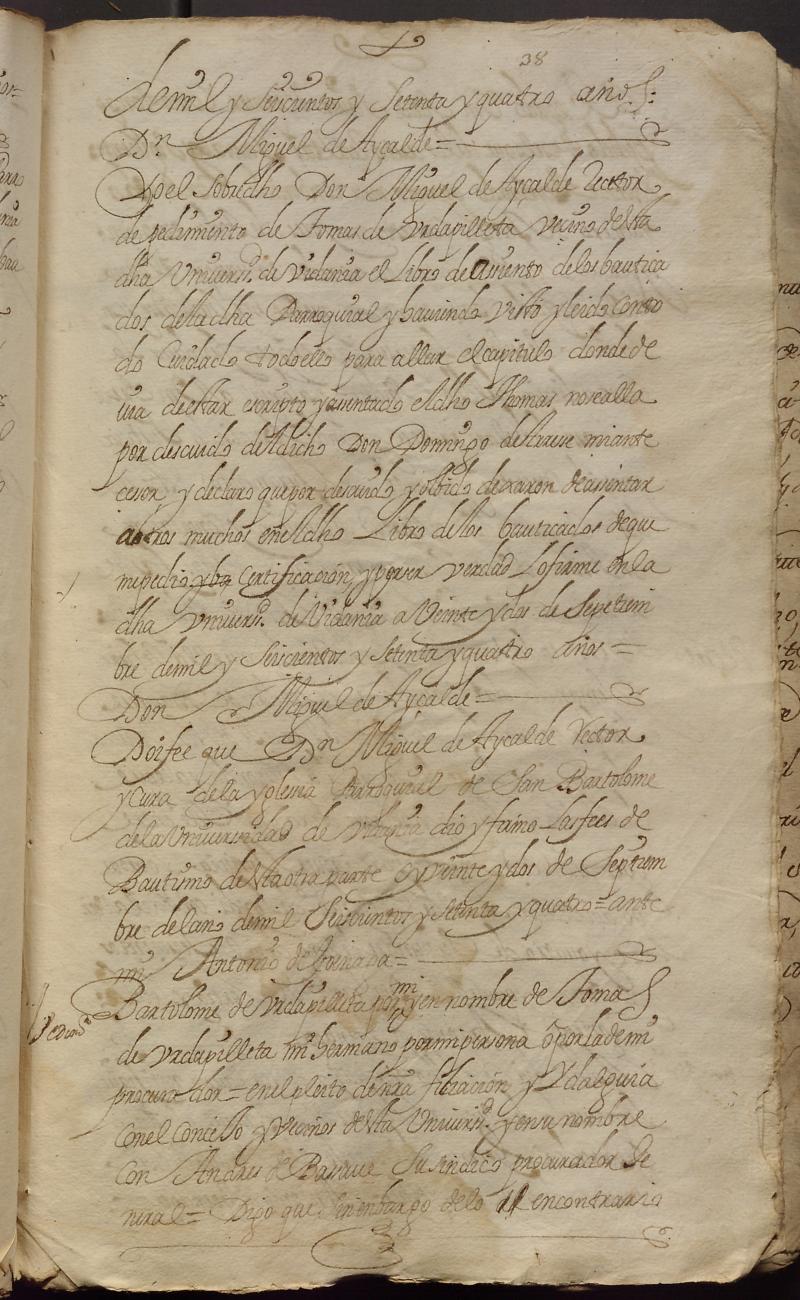 38
de mill y Seiscientos y Setenta y quatro años:
Dn. Miguel de Aycalde =
Yo el sobredho Don Miguel de Aycalde Rector
de pedimiento de Tomas de Vrdapilleta vecino de esta
dha Vniversd. de Vidania el Libro de asiento de los bautiça
dos de la dha Parroquial y haviendo visto y leido con to
do Cuidado todo ello para allar el capitulo donde de
via de estar escripto y asentado el dho Thomas no se alla
por descuido del dicho Don Domingo de miante
cesor y declaro que por descuido y olbido dexaron de assentar
a otros muchos en el dho Libro de los bauticados de que
me pedio Certificación, y por ser verdad Lo firme en la
dha Vniversd. de Vidania a Veinte y dos de Septiem
bre de mil y Seiscientos y setenta y quatro años =
Don Miguel de Aycalde =
Doi fee que Dn Miguel de Aycalde Rector
y Cura de la yglesia Parroquial de San Bartolome
de la Universidad de Vidania dio y firmo Las fees de
Bautismo de esta otra parte oy veinte y dos de Septiem
bre del año de mil Seiscientos y setenta y quatro = ante
mi Antonio de =
Bartolome de Vrdapilleta por mi y en nombre de Tomas
de Vrdapilleta mi hermano por mi persona o por la de mi
procurador = en el pleito de nra filiación y Ydalguia
con el Concejo y Vecinos de esta Universd. y en su nombre
con Andres de su sindico procurador Ge
neral = Digo que sin embargo de lo en contrario